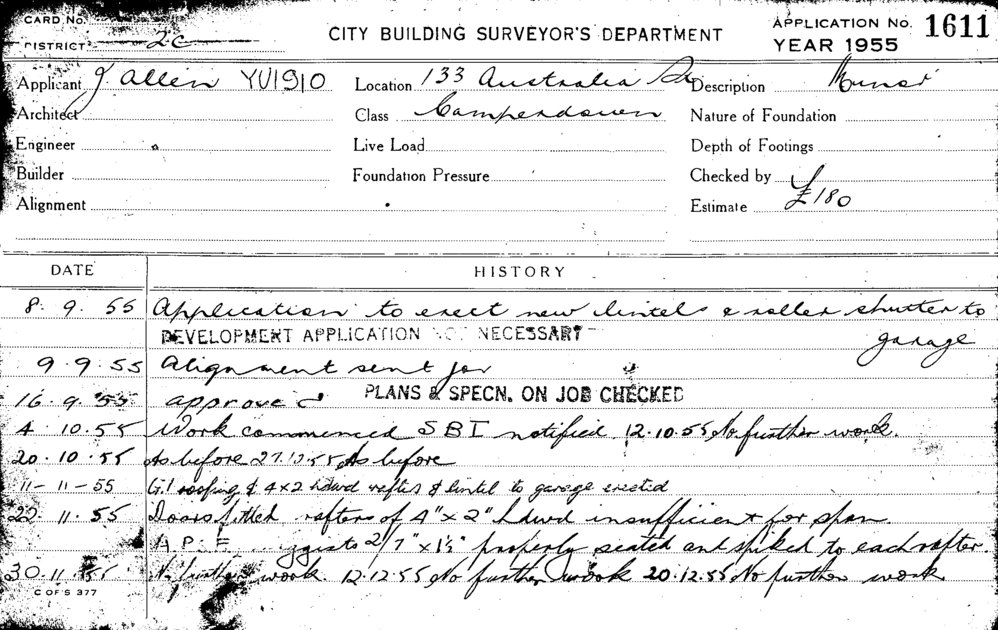 CARD No.
DISTRICT 2C
CITY BUILDING SURVEYOR'S DEPARTMENT
APPLICATION No. 1611
YEAR 1955
Applicant J. Allen YU1910 Location 133 Australia St Description Minor
Architect Class Camperdown Nature of Foundation
Engineer Live Load Depth of Footings
Builder Foundation Pressure Checked by
Alignment Estimate £180
DATE HISTORY
8. 9. 55 Application to erect new lintels & roller shutter to
DEVELOPMENT APPLICATION NOT NECESSARY garage
9. 9. 55 Alignment sent for
16. 9. 55 approved PLANS & SPECN. ON JOB CHECKED
4. 10. 55 Work commenced SBI notified 12.10.55 No further work.
20. 10. 55 As before 27.10.55 As before
11-11-55 G.I roofing & 4x2 hdwd rafters & lintel to garage erected
22. 11. 55 Doors fitted rafters of 4" x 2" hdwd insufficient for span
7" x 1½" properly seated and spiked to each rafter.
30. 11. 55 No further work. 12.12.55 No further work 20.12.55 No further work
C OF S 377